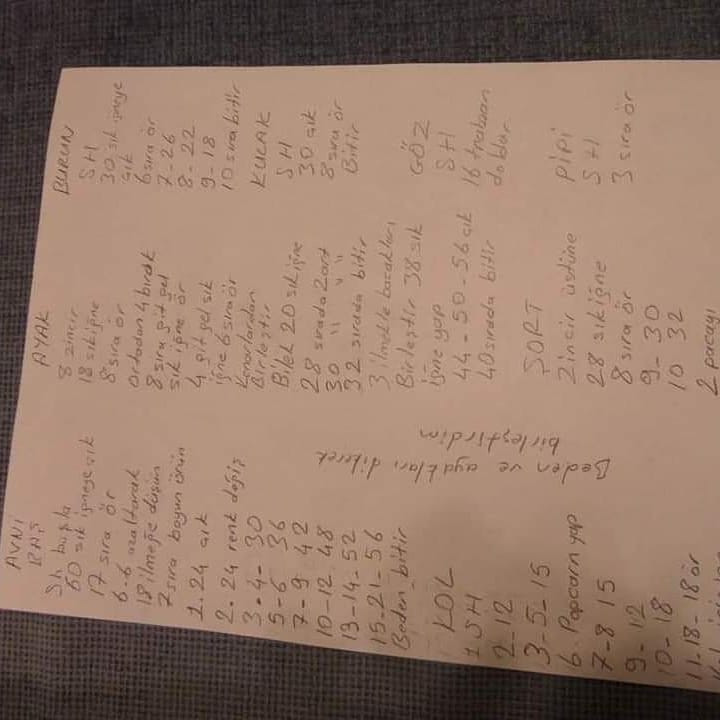 AVNİ
BAŞ
SH başla
60 sık iğneye çık
17 sıra ör
6-6 azaltarak
18 ilmeğe düşün
7 sıra boyun örün
1-24 çık
2-24 renk değiş
3-4-30
5-6 36
7-9 42
10-12 48
13-14-52
15-21-56
Beden bitir
KOL
1 SH
2-12
3-5-15
6. Popcorn yap
7-8 15
9-12
10-18
11-18-18 ör
Beden ve ayakları dikerek
birleştirdim
AYAK
8 zincir
18 sıkiğne
8 sıra ör
ortadan 4 bırak
8 sıra git gel
sık iğne ör
4 git gel sık
iğne 6 sıra ör
Kenarlardan
Birleştir
Bilek 20 sık iğne
28 sırada 2 art
30 " " "
32 sırada bitir
3 ilmekle bacakları
Birleştir 38 sık
iğne yap
44-50-56 çık
40 sırada bitir
ŞORT
Zincir üstüne
28 sıkiğne
8 sıra ör
9-30
10 32
2 paçayı
BURUN
SH
30 sık iğneye
çık
6 sıra ör
7-26
8-22
9-18
10 sıra bitir
KULAK
SH
30 çık
8 sıra ör
Bitir
GÖZ
SH
16 trabzan
doldur
PİPİ
SH
3 sıra ör